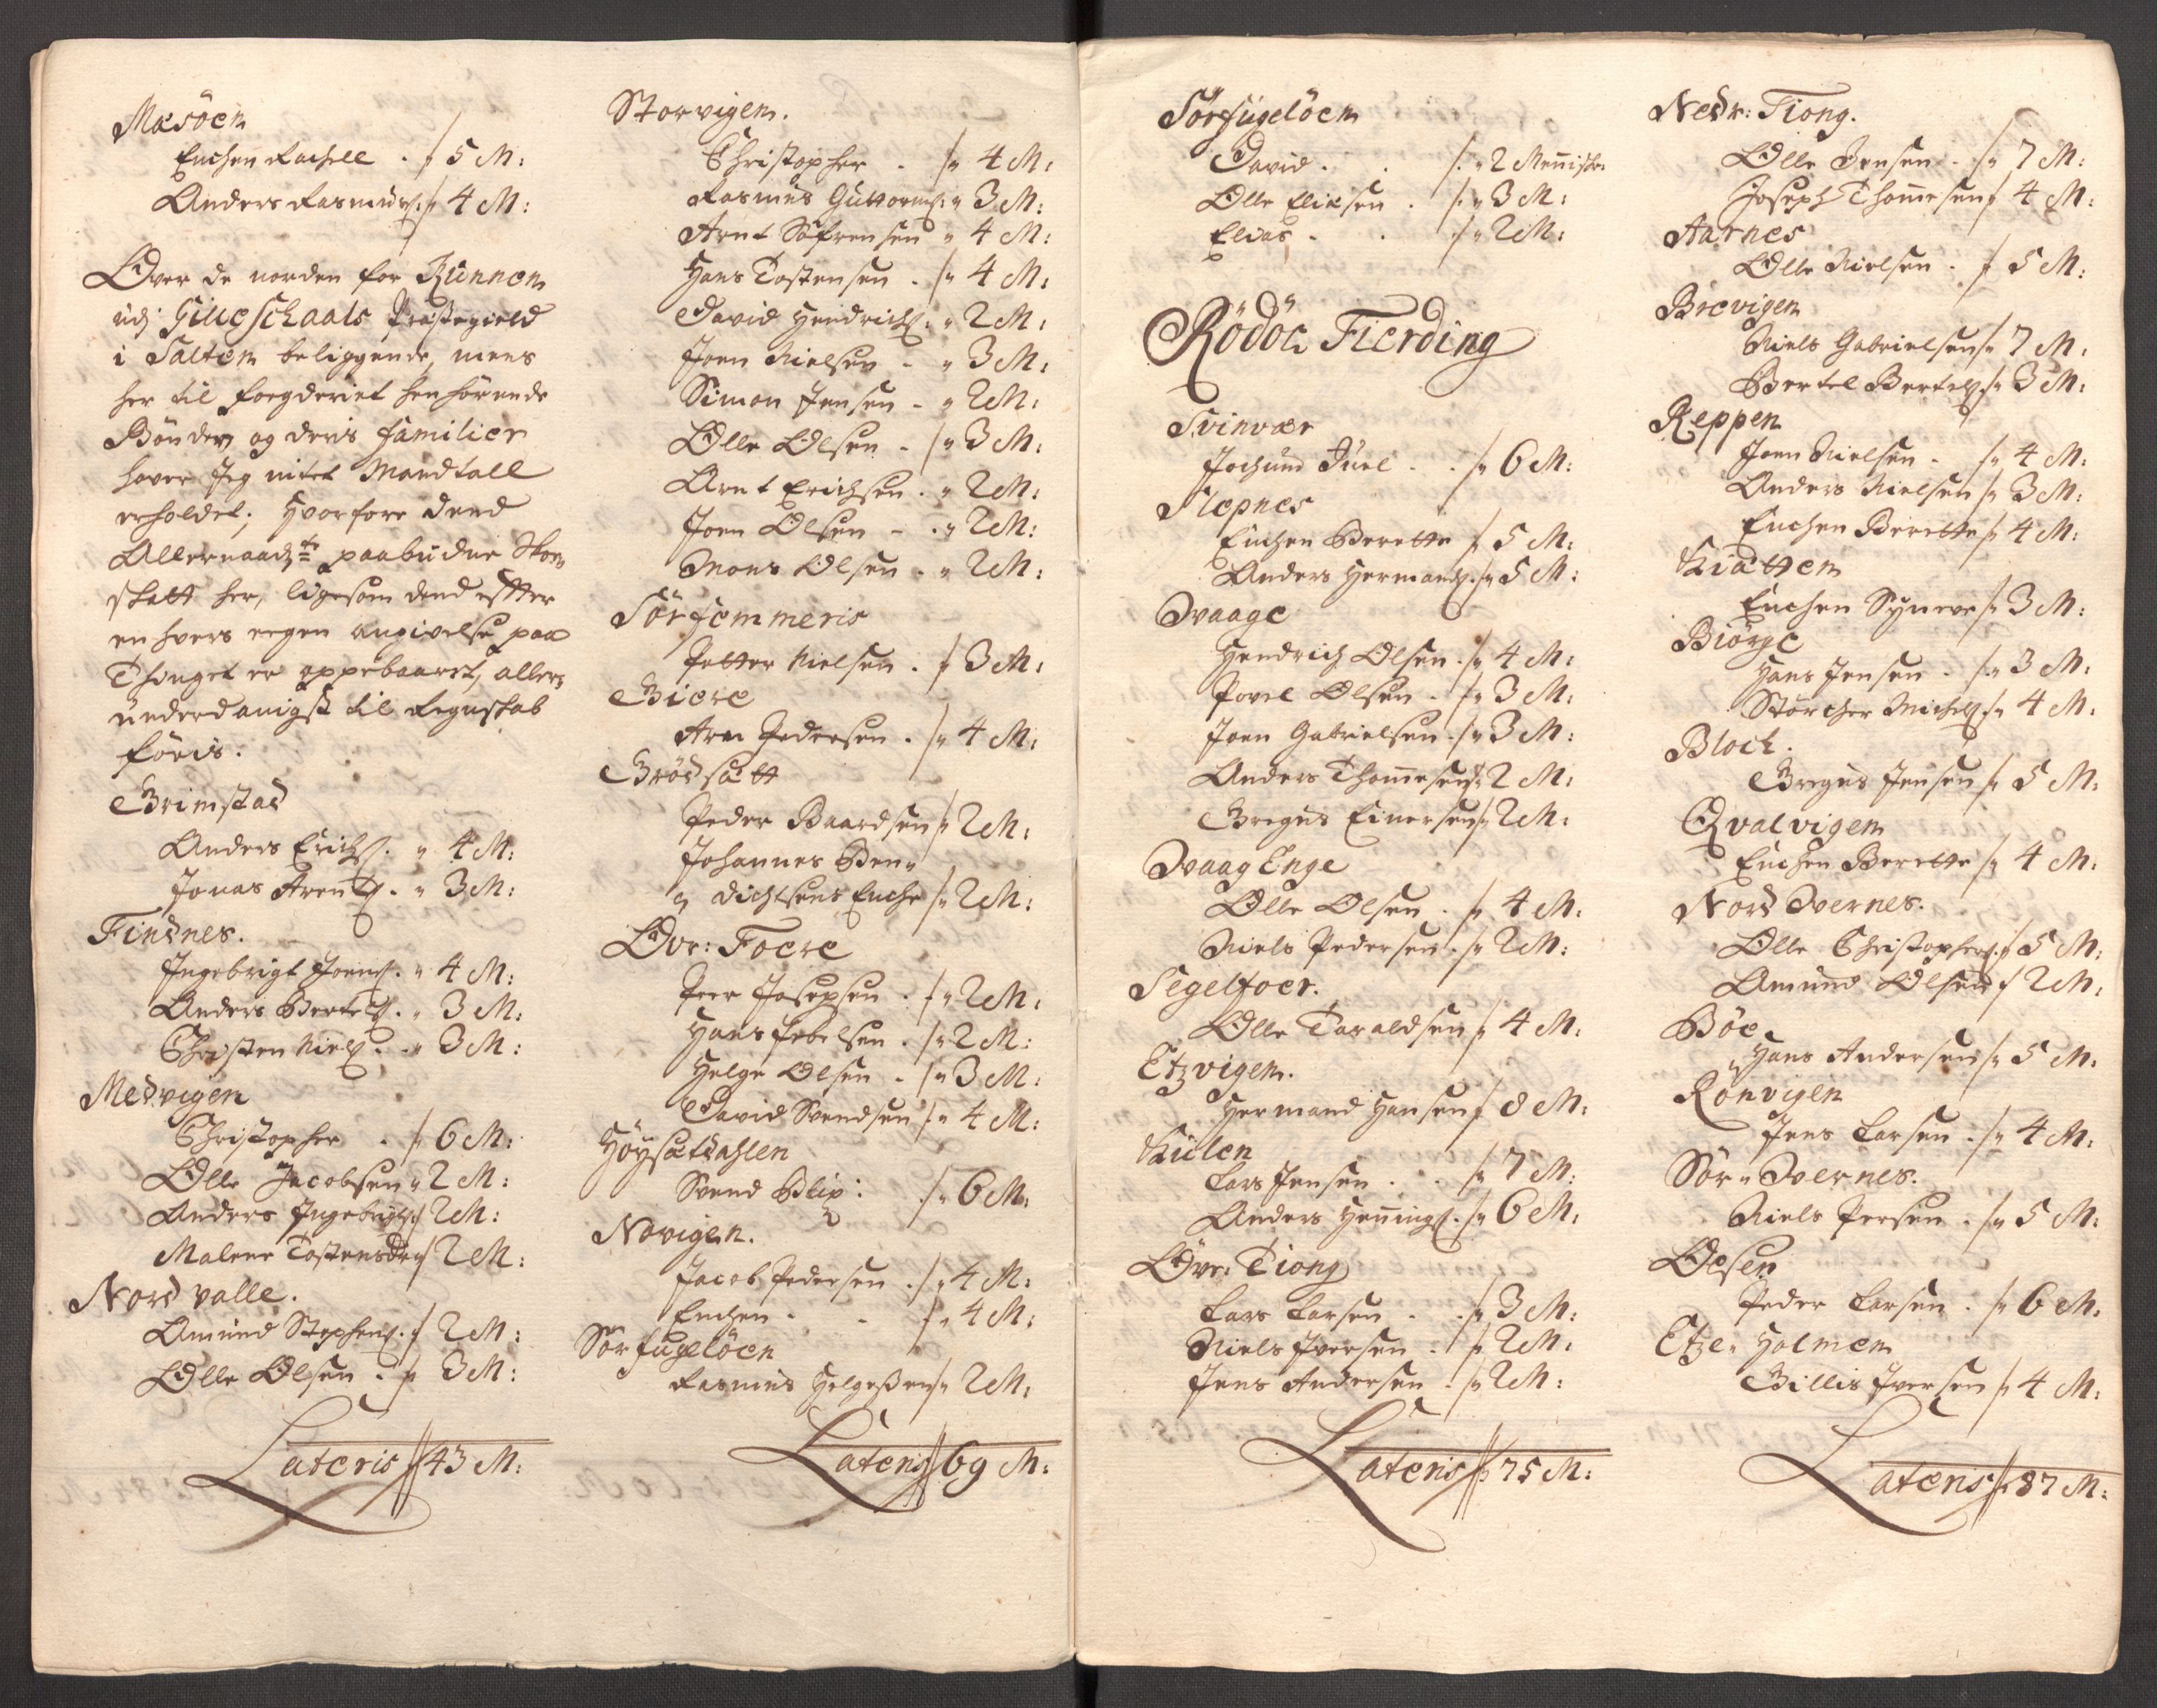 Mæsöen
Enchen Rachell . / 5 M:
Anders Rasmus: 4 M:
Over de norden for Kunnen
udj Gilleschaals Præstegield
i Salten beliggende, mens
her til foegderiet henhörende
Bönder og deris familier
haver Jeg intet Mandtall
erholdet; hvorfore dend
Allernaad:ste paabudne Skoe
skatt her, ligesom dend efter
en hvers eegen angivelse paa
Thinget er oppebaaret, aller
underdanigst til Regnskab
föris.
Grimstad
Anders Erichs: „ 4 M:
Jonas Arents. „ 3 M:
Findnes.
Ingebrigt Joens. „ 4 M:
Anders Bertels. „ 3 M:
Christen Niels. „ 3 M:
Medvigen
Christopher . 6 M:
Olle Jacobsen „ 2 M:
Anders Ingebrigts 2 M:
Malene Tostensdr 2 M:
Nord valle.
Amund Stephens. 2 M:
Olle Olsen . 3 M:
Lateris 43 M:
Storvigen.
Christopher . 4 M:
Rasmus Guttorms: „ 3 M:
Arnt Söfrensen „ 4 M:
Hans Tostensen . 4 M:
David Hendrichs: „ 2 M:
Joen Nielsen - „ 3 M:
Simon Jensen - „ 2 M:
Olle Olsen - 3 M:
Arnt Erichsen . „ 2 M:
Joen Olsen - . „ 2 M:
Mons Olsen . „ 2 M:
Sörfemmeris
Petter Nielsen . 3 M:
Giere
Arn Pedersen . 4 M:
Brödsætt
Peder Baardsen 2 M:
Johannes Ben„
„ dichtsens Enche 2 M:
Ovr: Foere
Peer Josepsen . 2 M:
Hans Febelsen . 2 M:
Helge Olsen . 3 M:
David Svendsen . 4 M:
Höysætdahlen
Svend Blix: . 6 M:
Novigen.
Jacob Pedersen . 4 M:
Enchen . - 4 M:
Sör fugelöen
Rasmus Helgesen 2 M:
Lateris 69 M:
Sörfugelöen
David . . „ 2 Mennisker
Olle Eliesen . „ 3 M:
Elias . . „ 2 M:
Rödöe Fierding
Svinvær
Jochum Juel . . 6 M:
Slepnes
Enchen Berette 5 M:
Anders Hermands. 5 M:
Svaage
Hendrich Olsen . 4 M:
Povel Olsen . 3 M:
Joen Gabrielsen . 3 M:
Anders Thommesen 2 M:
Gregus Einersen 2 M:
Svaag Enge
Olle Olsen . 4 M:
Niels Pedersen . 2 M:
Segelfoer.
Olle Taraldsen 4 M:
Etzvigen.
Hermand Hansen 8 M:
Kiilen
Lars Jensen . . 7 M:
Anders Hennings. 6 M:
Övr: Tiong
Lars Larsen . . 3 M:
Niels Iversen . 2 M:
Jens Andersen . 2 M:
Lateris 75 M:
Nedr: Tiong.
Olle Jensen . 7 M:
Joseph Thommesen 4 M:
Aarnes
Olle Nielsen . 5 M:
Brevigen
Niels Gabrielsen 7 M:
Bertel Bertels 3 M:
Reppen
Joen Nielsen . 4 M:
Anders Nielsen 3 M:
Enchen Berette 4 M:
Kiatten
Enchen Synneve 3 M:
Biörge
Hans Jensen . 3 M:
Störcher Michels 4 M:
Bloch.
Gregus Jensen 5 M:
Qvalvigen
Enchen Berette 4 M:
Nord Overnes.
Olle Christophers. 5 M:
Amund Olsen 2 M:
Böe.
Hans Andersen 5 M:
Rönvigen
Jens Larsen . 4 M:
Sör„ Overnes.
Niels Persen . 5 M:
Olsen
Peder Larsen . 6 M:
Etze„ Holmen
Billis Iversen 4 M:
Lateris 87 M: